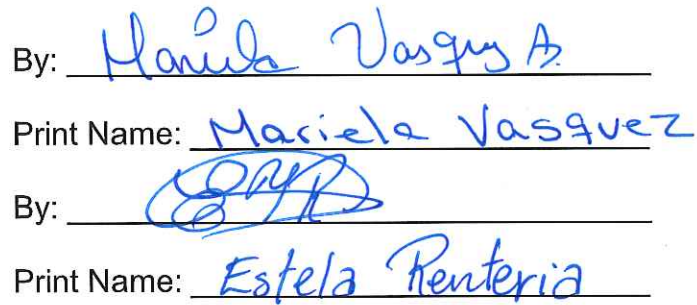 By: Mariela Vasquez A.
Print Name: Mariela Vasquez
By:
Print Name: Estela Renteria